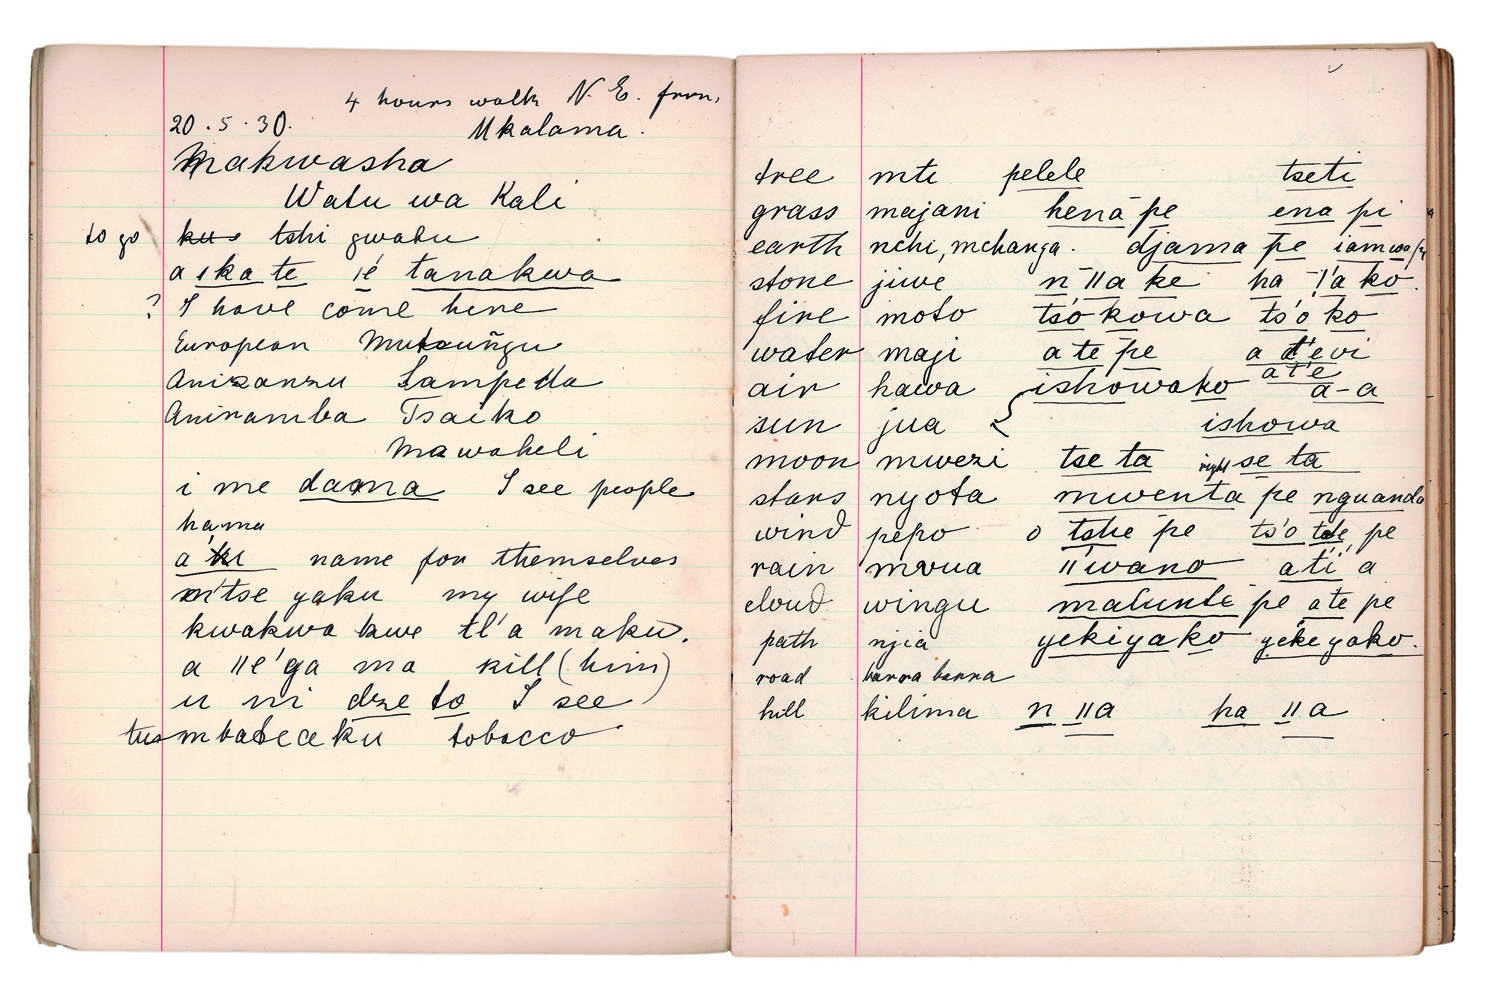 4 hours walk N. E. from
20.5.30. Mkalama.
Makwasha
Watu wa Kali
to go tshi gwatu
a ska te ıé tanakwa
? I have come here
European Mutsuñgu
Anizanzu Lampeda
Aniramba Tsaiko
Mawakeli
i me dama I see people
hama
a'ki name for themselves
m'tse yaku my wife
kwakwa kwe tl'a maku.
a ǁe'ga ma kill (him)
u ni dze to I see
mbabeaku tobacco
tree mti pelele tseti
grass majani henā pe ena pi
earth nchi, mchanga. djama p̄e
stone jiwe n ̄ǁa ke ha ̄ǃ'a ko.
fire moto tsō kowa ts'o ko
water maji a te p̄e a t'evi
at'e
air hawa ishowako a-a
sun jua ishowa
moon mwezi tse ta right se ta
stars nyota mwenta pe nguanda
wind pepo o tshe pe ts'o tse pe
rain mvua ǁ'wano ati' a
cloud wingu malunde pe ate pe
path njia yekiyako yekeyako.
road barra barra
hill kilima n ǁa ha ǁa